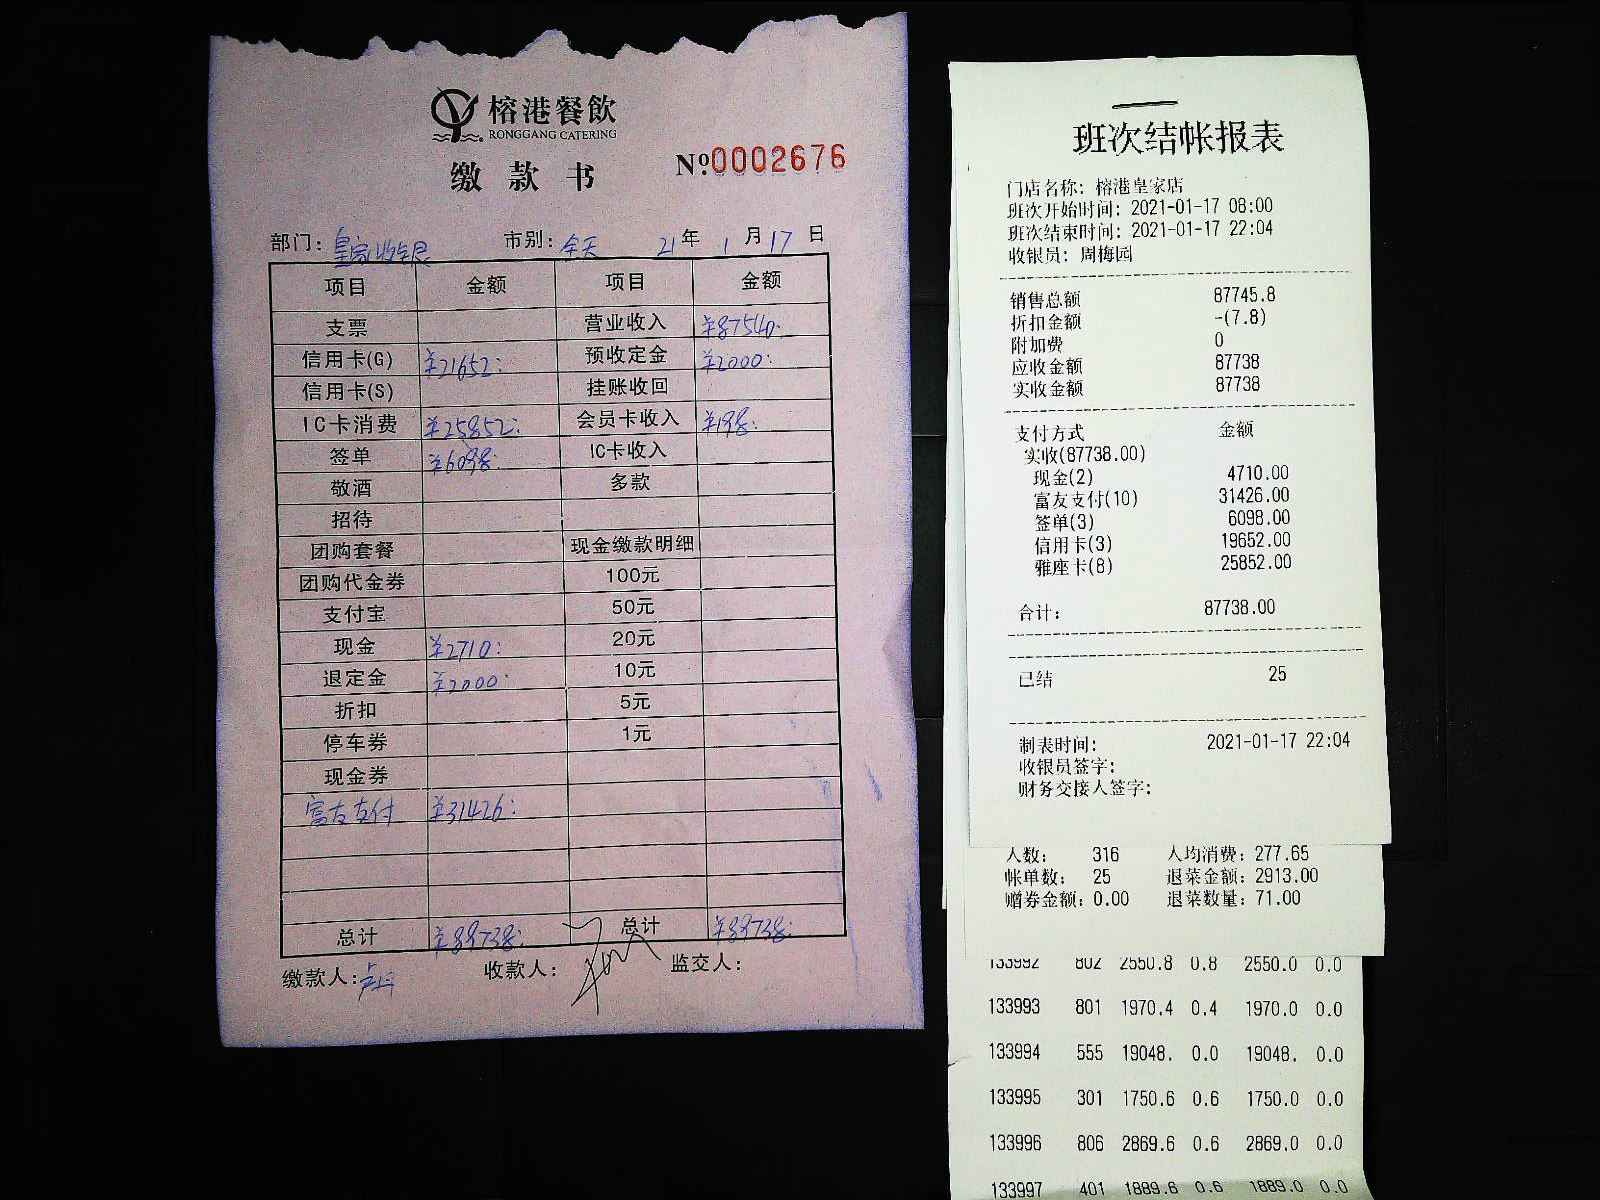 榕港餐飲
RONGGANG CATERING
缴款书 №0002676
部门: 皇家收银 市别: 全天 21年 1月17日
项目 金额 项目 金额
支票 营业收入 ¥87540.
信用卡(G) ¥21652. 预收定金 ¥2000.
信用卡(S) 挂账收回
IC卡消费 ¥25852. 会员卡收入 ¥198.
签单 ¥6098. IC卡收入
敬酒 多款
招待
团购套餐 现金缴款明细
团购代金券 100元
支付宝 50元
现金 ¥2710. 20元
退定金 ¥2000. 10元
折扣 5元
停车券 1元
现金券
富友支付 ¥31426.
总计 ¥89738. 总计 ¥89738.
缴款人: 收款人: 监交人:
班次结帐报表
门店名称: 榕港皇家店
班次开始时间: 2021-01-17 08:00
班次结束时间: 2021-01-17 22:04
收银员: 周梅园
销售总额 87745.8
折扣金额 -(7.8)
附加费 0
应收金额 87738
实收金额 87738
支付方式 金额
实收(87738.00)
现金(2) 4710.00
富友支付(10) 31426.00
签单(3) 6098.00
信用卡(3) 19652.00
雅座卡(8) 25852.00
合计: 87738.00
已结 25
制表时间: 2021-01-17 22:04
收银员签字:
财务交接人签字:
人数: 316 人均消费: 277.65
帐单数: 25 退菜金额: 2913.00
赠券金额: 0.00 退菜数量: 71.00
133992 802 2550.8 0.8 2550.0 0.0
133993 801 1970.4 0.4 1970.0 0.0
133994 555 19048. 0.0 19048. 0.0
133995 301 1750.6 0.6 1750.0 0.0
133996 806 2869.6 0.6 2869.0 0.0
133997 401 1889.6 0.6 1889.0 0.0